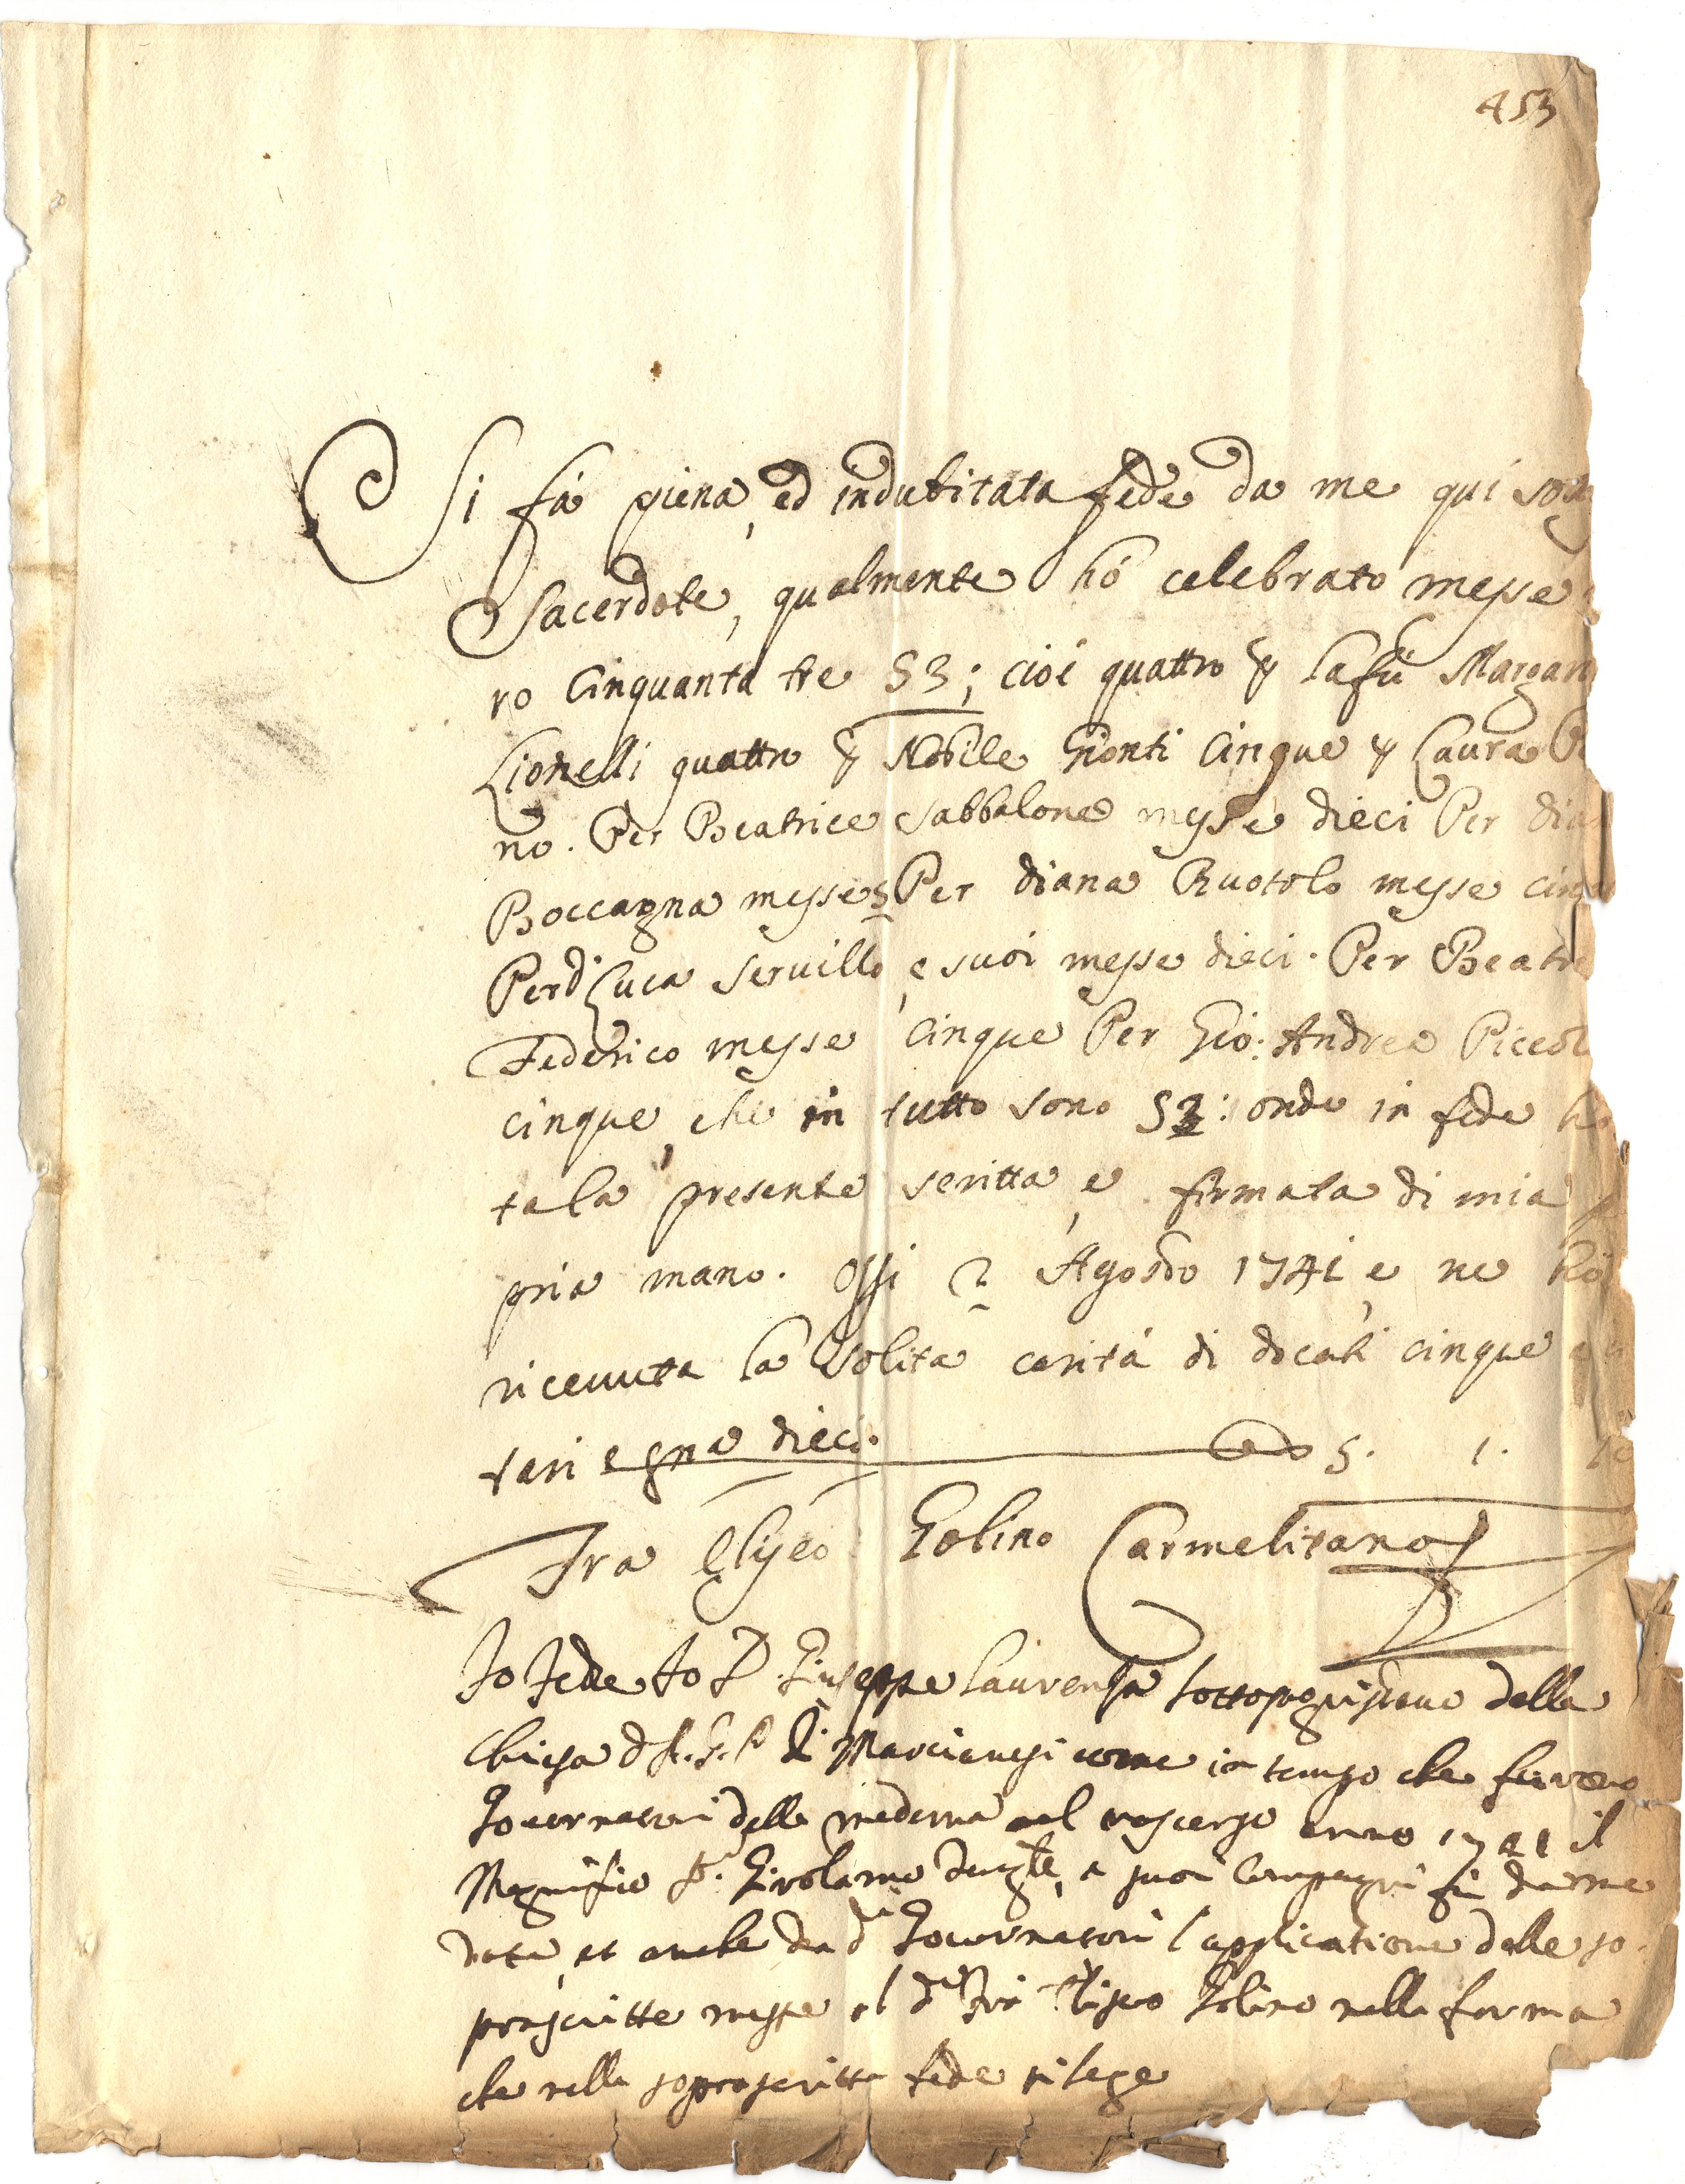 453
Si fá piena, ed indubitata fede da me qui
Sacerdote, qualmente hó celebrato messe
ro Cinquanta tre 53; cioé quattro per la fù Margari
Lionelli quattro per Nobile Gionti Cinque per Laura
no. Per Beatrice Sabbalone messe dieci Per Dia
Boccagna messe 5 Per Diana Ruotolo messe cinq
Per D Luca Servillo, e suoi messe dieci. Per Beatri
Federico messe cinque Per Gio: Andrea Piccol
cinque, che in tutto sono 53: onde in fede hó
ta la presente scritta, e firmata di mia
pria mano. Oggi 2 Agosto 1741, e ne hó
ricevuta la solita caritá di docati cinque
tari e gna dieci. 5. 1. 10
Fra Elyseo Golino Carmelitano
Io Fede Io D. Giuseppe Laurenza Sottosagristano della
Chiesa d A. G. P. di Marcianesi come in tempo che furono
Governatori della medema nel trascorso anno 1741 il
Magnifico Girolamo, e suoi Compagni fù da me
data, et anche da d.i Governatori l applicatione delle so
prascritte messe al d.o Fra Eliseo Golino nella forma
che nella soprascritta fede si lege